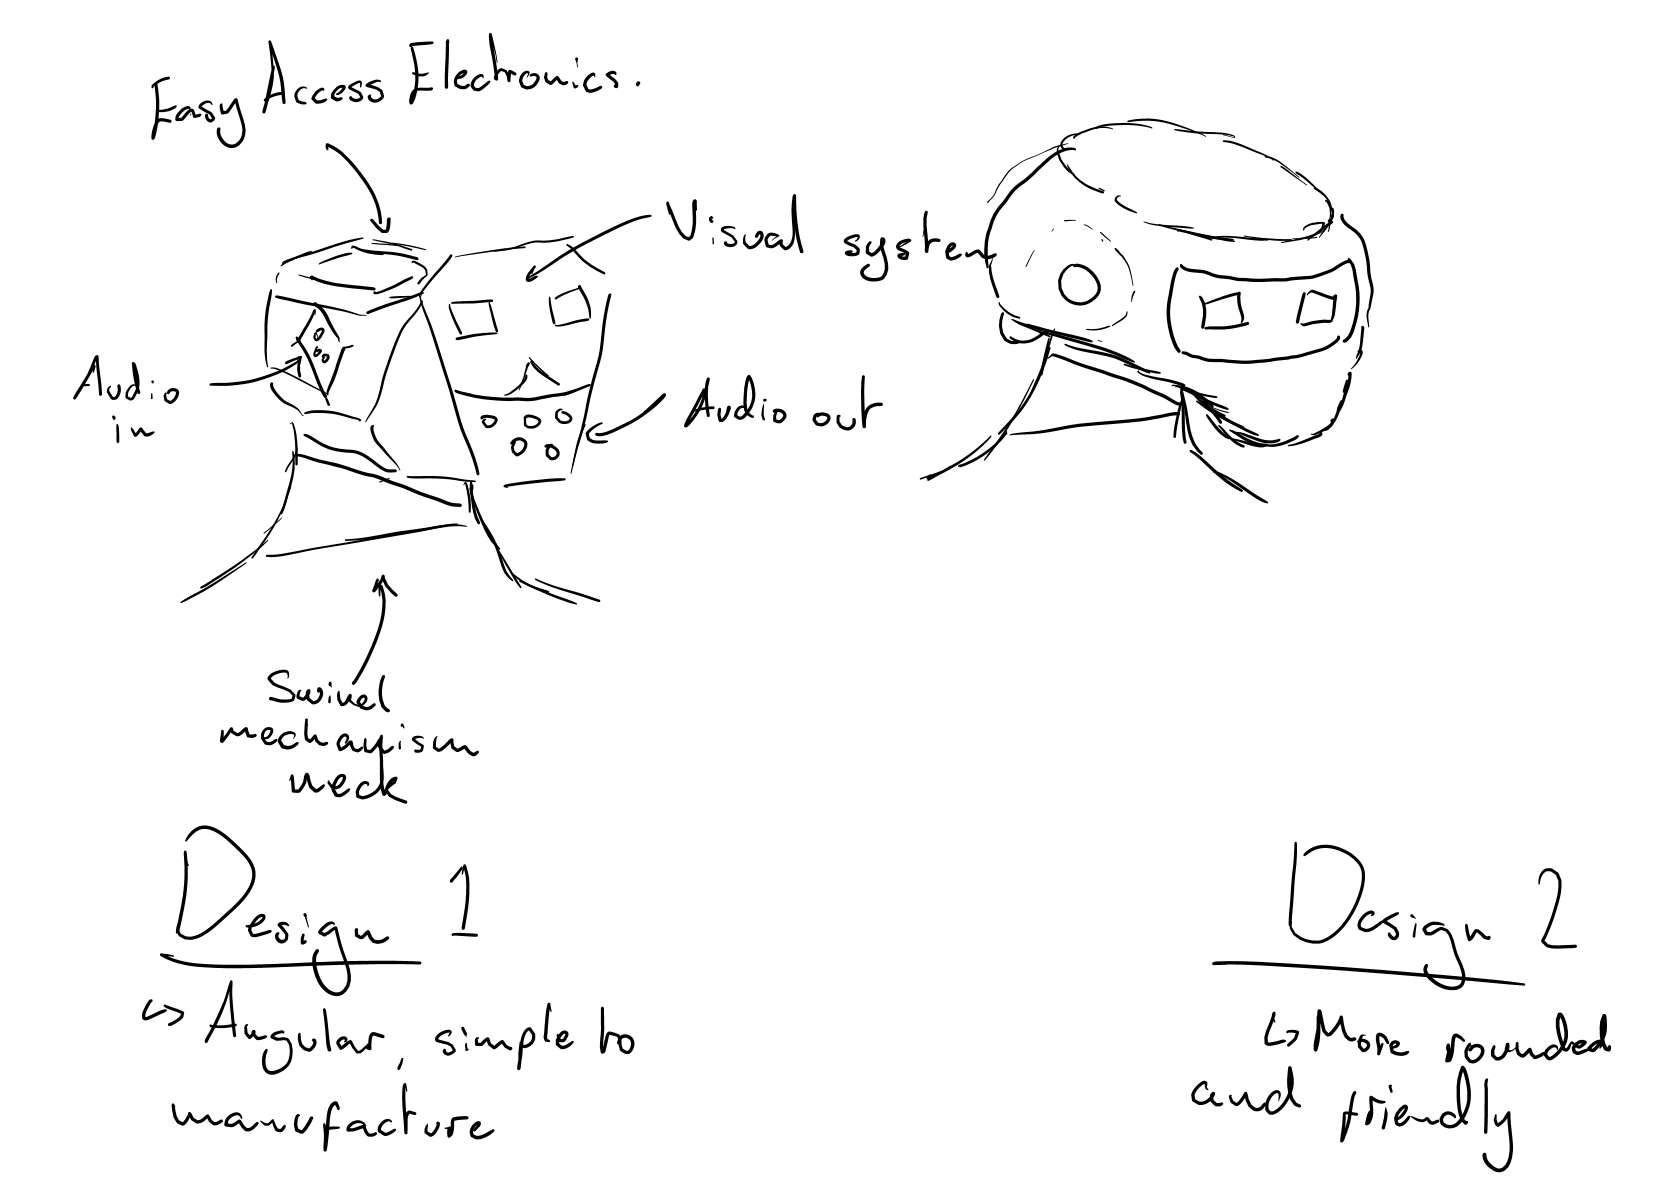 Easy Access Electronics.
Visual system
Audio
in
Audio out
Swivel
mechanism
neck
Design 1
↳ Angular, simple to
manufacture
Design 2
↳ More rounded
and friendly